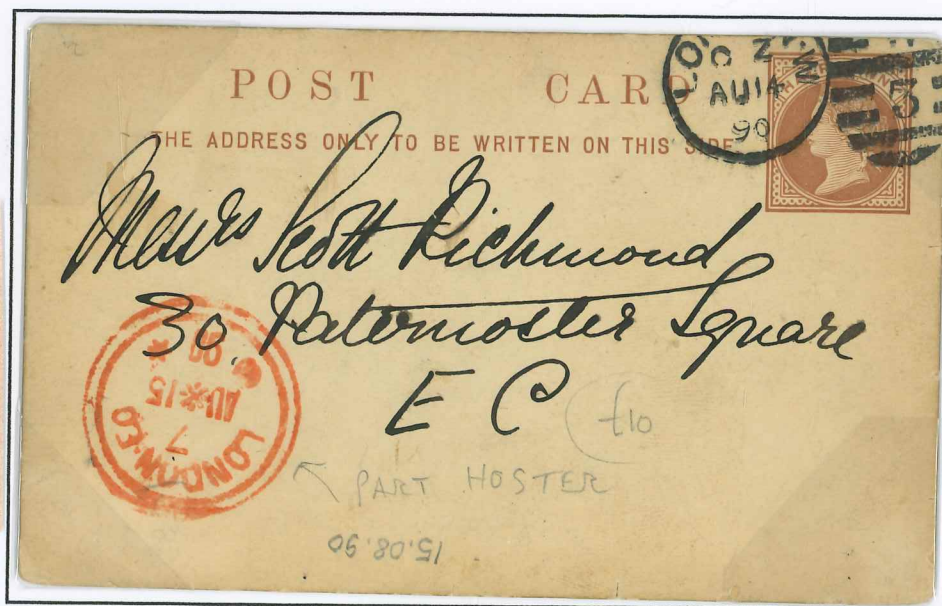 POST CARD
THE ADDRESS ONLY TO BE WRITTEN ON THIS SIDE.
C Z
AU14
90
Messrs Scott Richmond
30, Paternoster Square
E C
£10
LONDON·EC
7
AU✻15
90
PART HOSTER
15.08.90